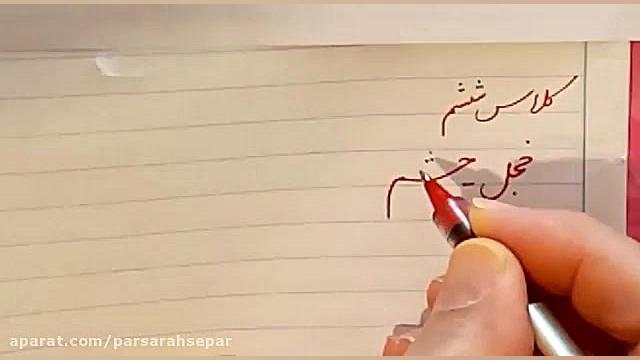 کلاس ششم
خجل چشم
aparat.com/parsarahsepar